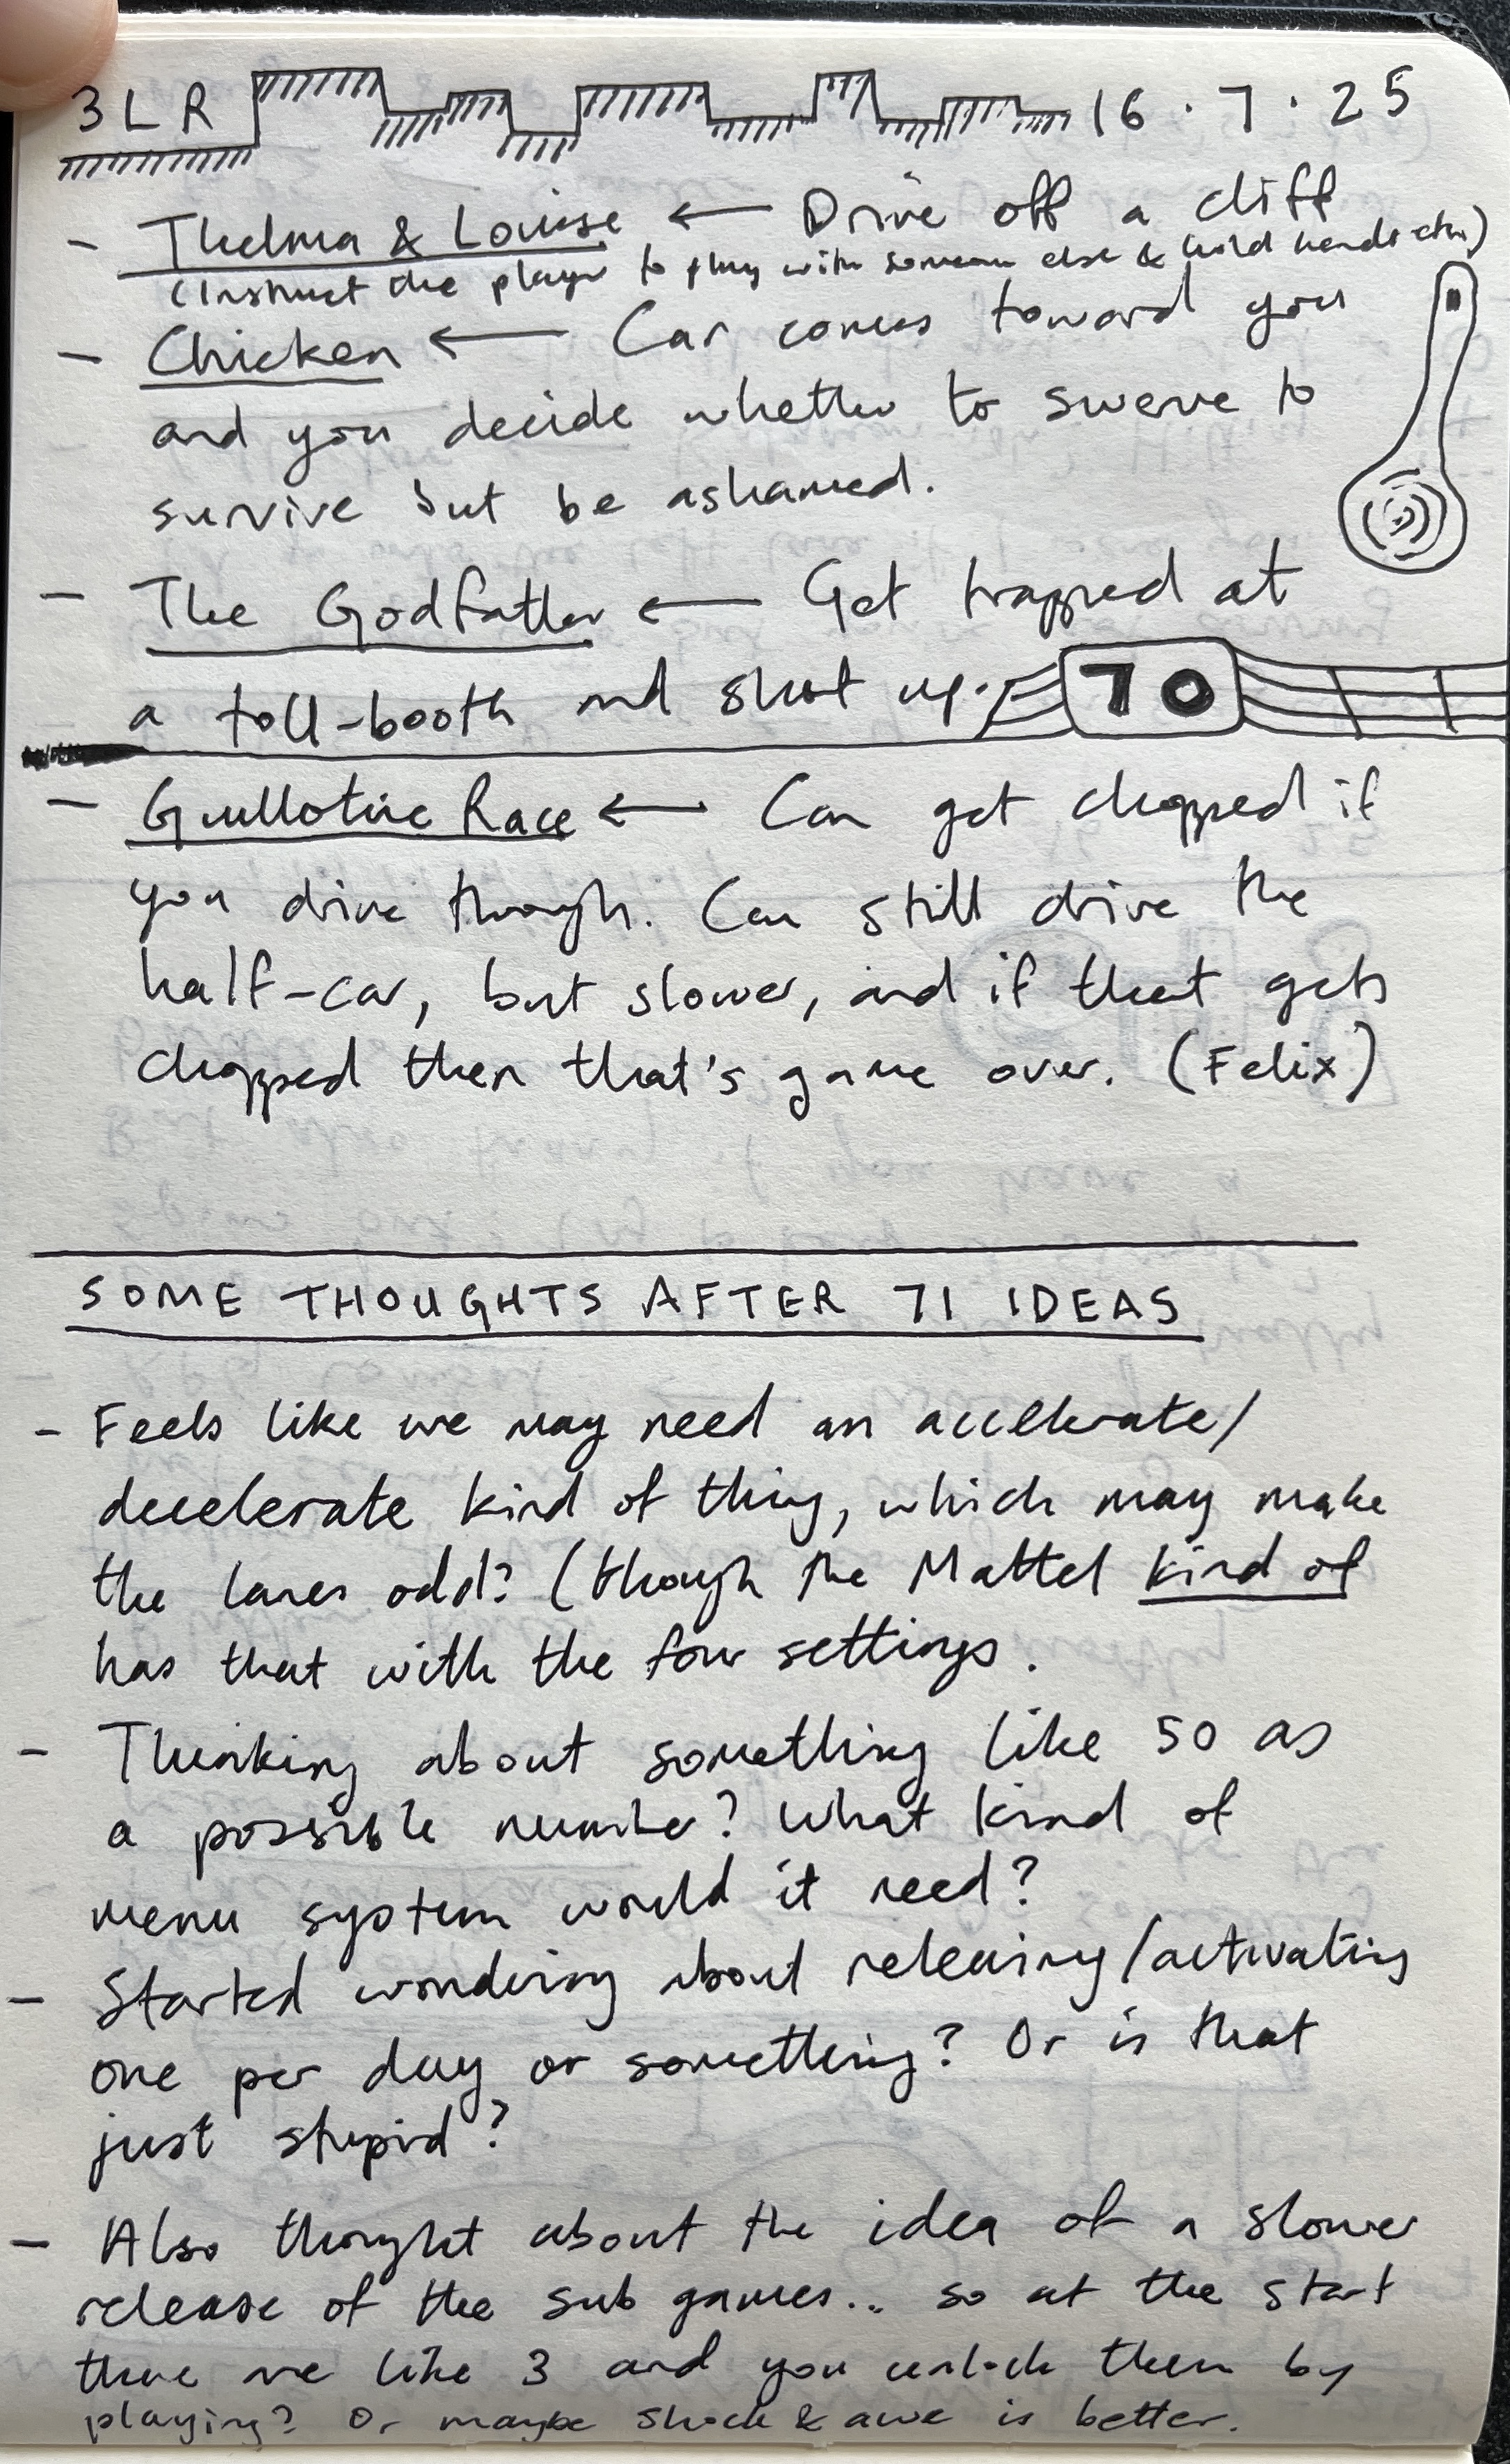 3LR 16.7.25
- Thelma & Louise ← Drive off a cliff
(Instruct the player to play with someone else & hold hands etc.)
- Chicken ← Car comes toward you
and you decide whether to swerve to
survive but be ashamed.
- The Godfather ← Get trapped at
a toll-booth and shot up.
70
- Guillotine Race ← Can get chopped if
you drive through. Can still drive the
half-car, but slower, and if that gets
chopped then that's game over. (Felix)
SOME THOUGHTS AFTER 71 IDEAS
- Feels like we may need an accellerate/
decelerate kind of thing, which may make
the lanes odd? (though the Mattel kind of
has that with the four settings.
- Thinking about something like 50 as
a possible number? What kind of
menu system would it need?
- Started wondering about releasing/activating
one per day or something? Or is that
just stupid?
- Also thought about the idea of a slower
release of the sub games... so at the start
there are like 3 and you unlock them by
playing? Or maybe shock & awe is better.